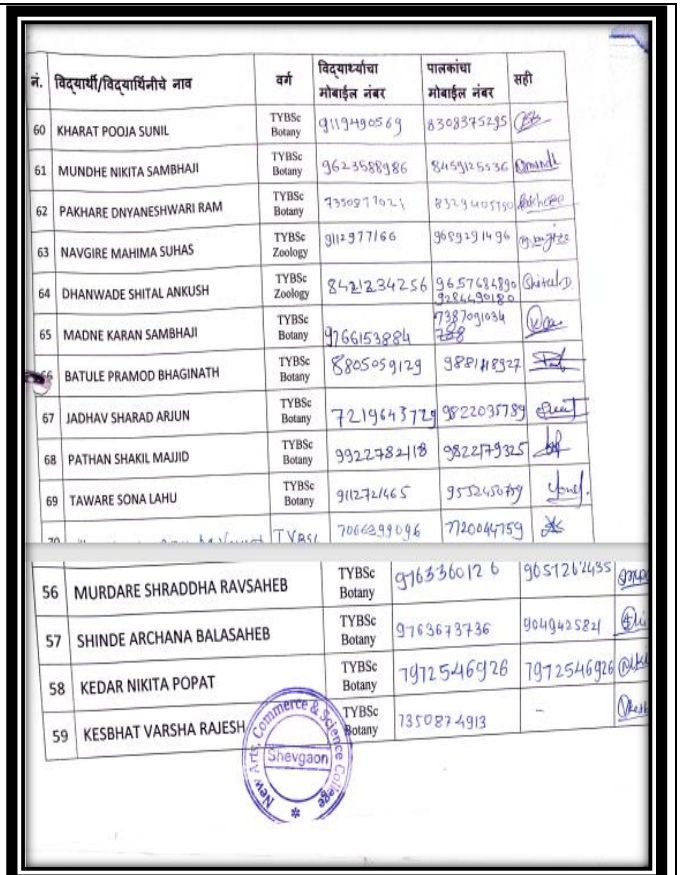 नं. विद्यार्थी/विद्यार्थिनीचे नाव वर्ग विद्यार्थ्याचा मोबाईल नंबर पालकांचा मोबाईल नंबर सही
60 KHARAT POOJA SUNIL TYBSc Botany 9119490569 8308375295
61 MUNDHE NIKITA SAMBHAJI TYBSc Botany 9623588986 8459125536
62 PAKHARE DNYANESHWARI RAM TYBSc Botany
63 NAVGIRE MAHIMA SUHAS TYBSc Zoology 9112977166 9689291496
64 DHANWADE SHITAL ANKUSH TYBSc Zoology 8421234256 9657684890 9284490180 Shital D
65 MADNE KARAN SAMBHAJI TYBSc Botany 9766153884 7387091034
66 BATULE PRAMOD BHAGINATH TYBSc Botany 8805059129 9881418927
67 JADHAV SHARAD ARJUN TYBSc Botany 7219643729 9822035789
68 PATHAN SHAKIL MAJJID TYBSc Botany 9922782118 9822179325
69 TAWARE SONA LAHU TYBSc Botany 9112721465
70 TYBSc 7066399096 7720044759
56 MURDARE SHRADDHA RAVSAHEB TYBSc Botany 9763360126
57 SHINDE ARCHANA BALASAHEB TYBSc Botany 9763673736 9049425821
58 KEDAR NIKITA POPAT TYBSc Botany 7972546926 7972546926
59 KESBHAT VARSHA RAJESH TYBSc Botany 7350874913 -
New Arts, Commerce & Science College
Shevgaon